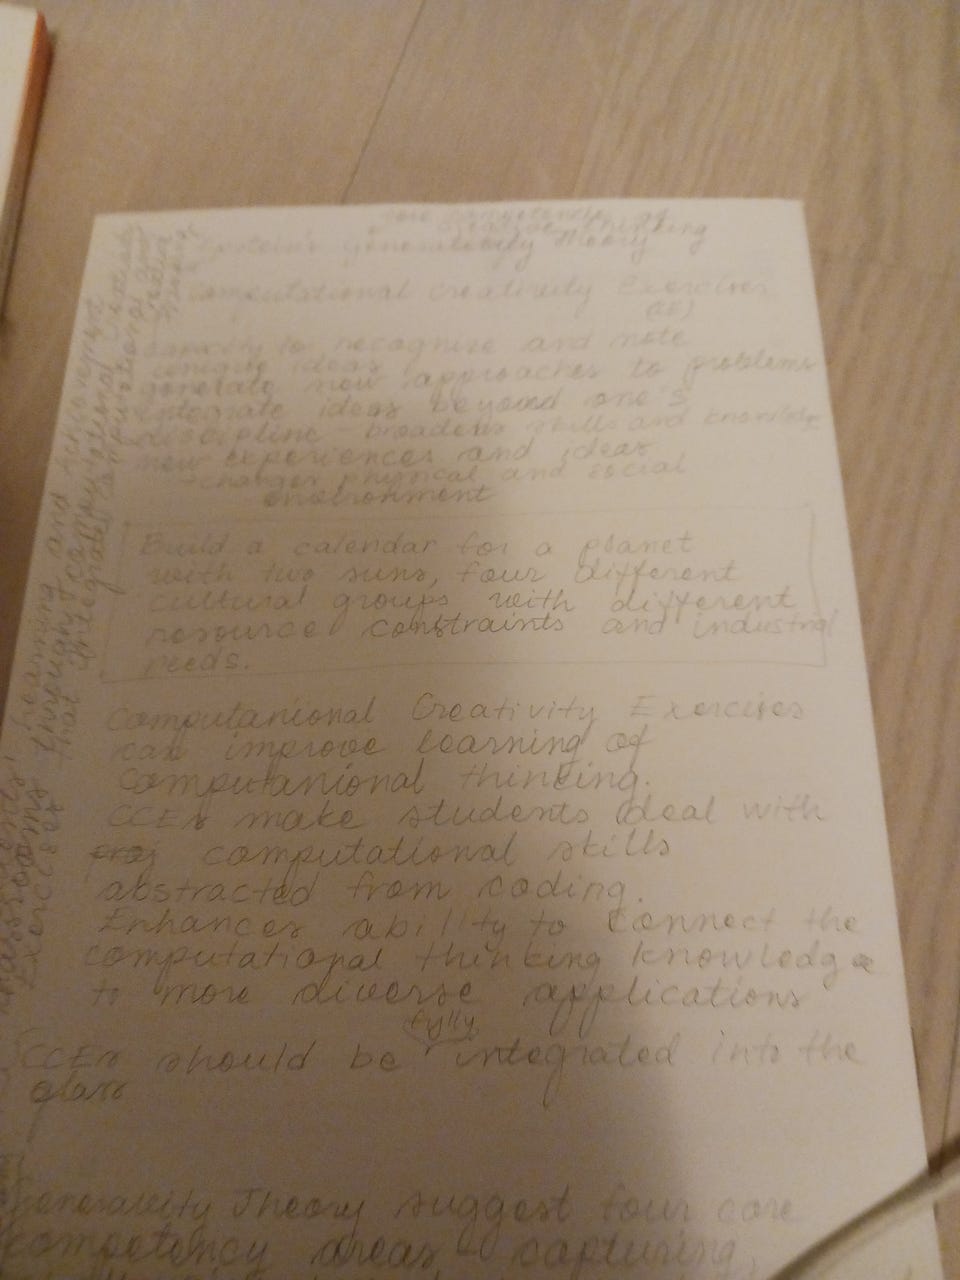 core competencies of
creative thinking
Epstein's Generativity Theory
Computational Creativity Exercises
capacity to recognize and note
unique ideas
generate new approaches to problems
integrate ideas beyond one's
discipline - broadens skills and knowledge
new experiences and ideas
- changes physical and social
environment
Build a calendar for a planet
with two suns, four different
cultural groups with different
resource constraints and industrial
needs.
Computanional Creativity Exercises
can improve learning of
computanional thinking.
CCEs make students deal with
computational skills
abstracted from coding.
Enhances ability to connect the
computational thinking knowledge
to more diverse applications
fully
CCEs should be integrated into the
class
Generavity Theory suggest four core
competency areas - capturing,
Learning and Achievement
through
that integrate computational
Exercises